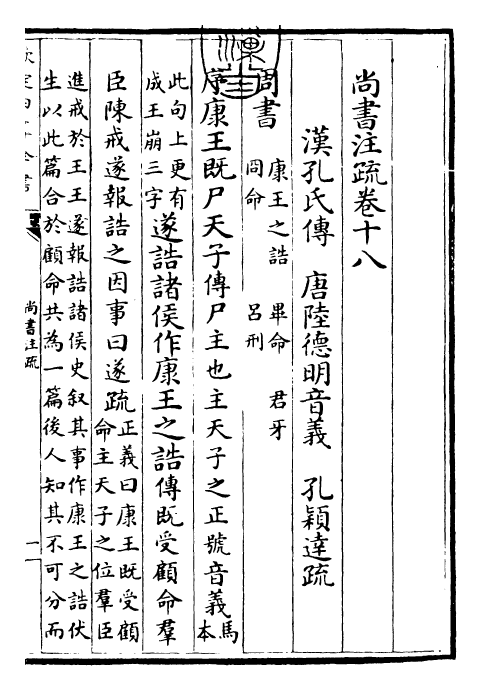 尚書注疏卷十八
漢孔氏傳　唐陸德明音義　孔穎達疏
周書　康王之誥　畢命　君牙
冏命　呂刑
序康王既尸天子傳尸主也主天子之正號音義馬本
此句上更有
成王崩三字遂誥諸侯作康王之誥傳既受顧命羣
臣陳戒遂報誥之因事曰遂疏正義曰康王既受顧
命主天子之位羣臣
進戒於王王遂報誥諸侯史叙其事作康王之誥伏
生以此篇合於顧命共為一篇後人知其不可分而
欽定四庫全書
尚書注疏
一